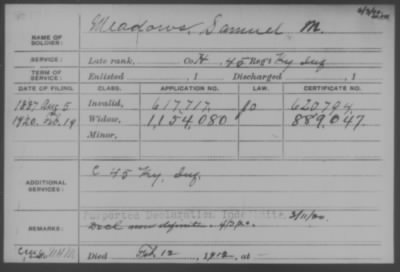 Meadows, Samuel M.
NAME OF SOLDIER:
SERVICE: Late rank, Co. H, 45 Reg't Ky Inf
TERM OF SERVICE: Enlisted , 1 Discharged , 1
DATE OF FILING. CLASS. APPLICATION NO. LAW. CERTIFICATE NO.
1887 Aug 5 Invalid, 617,717, 620,794
1920 Feb. 19 Widow, 1,154,080 889,047
Minor,
ADDITIONAL SERVICES: C 45 Ky, Inf.
Declaration 3/11/20.
REMARKS: Decl now definite. 4/3/20.
Died Feb 12, 1912, at —